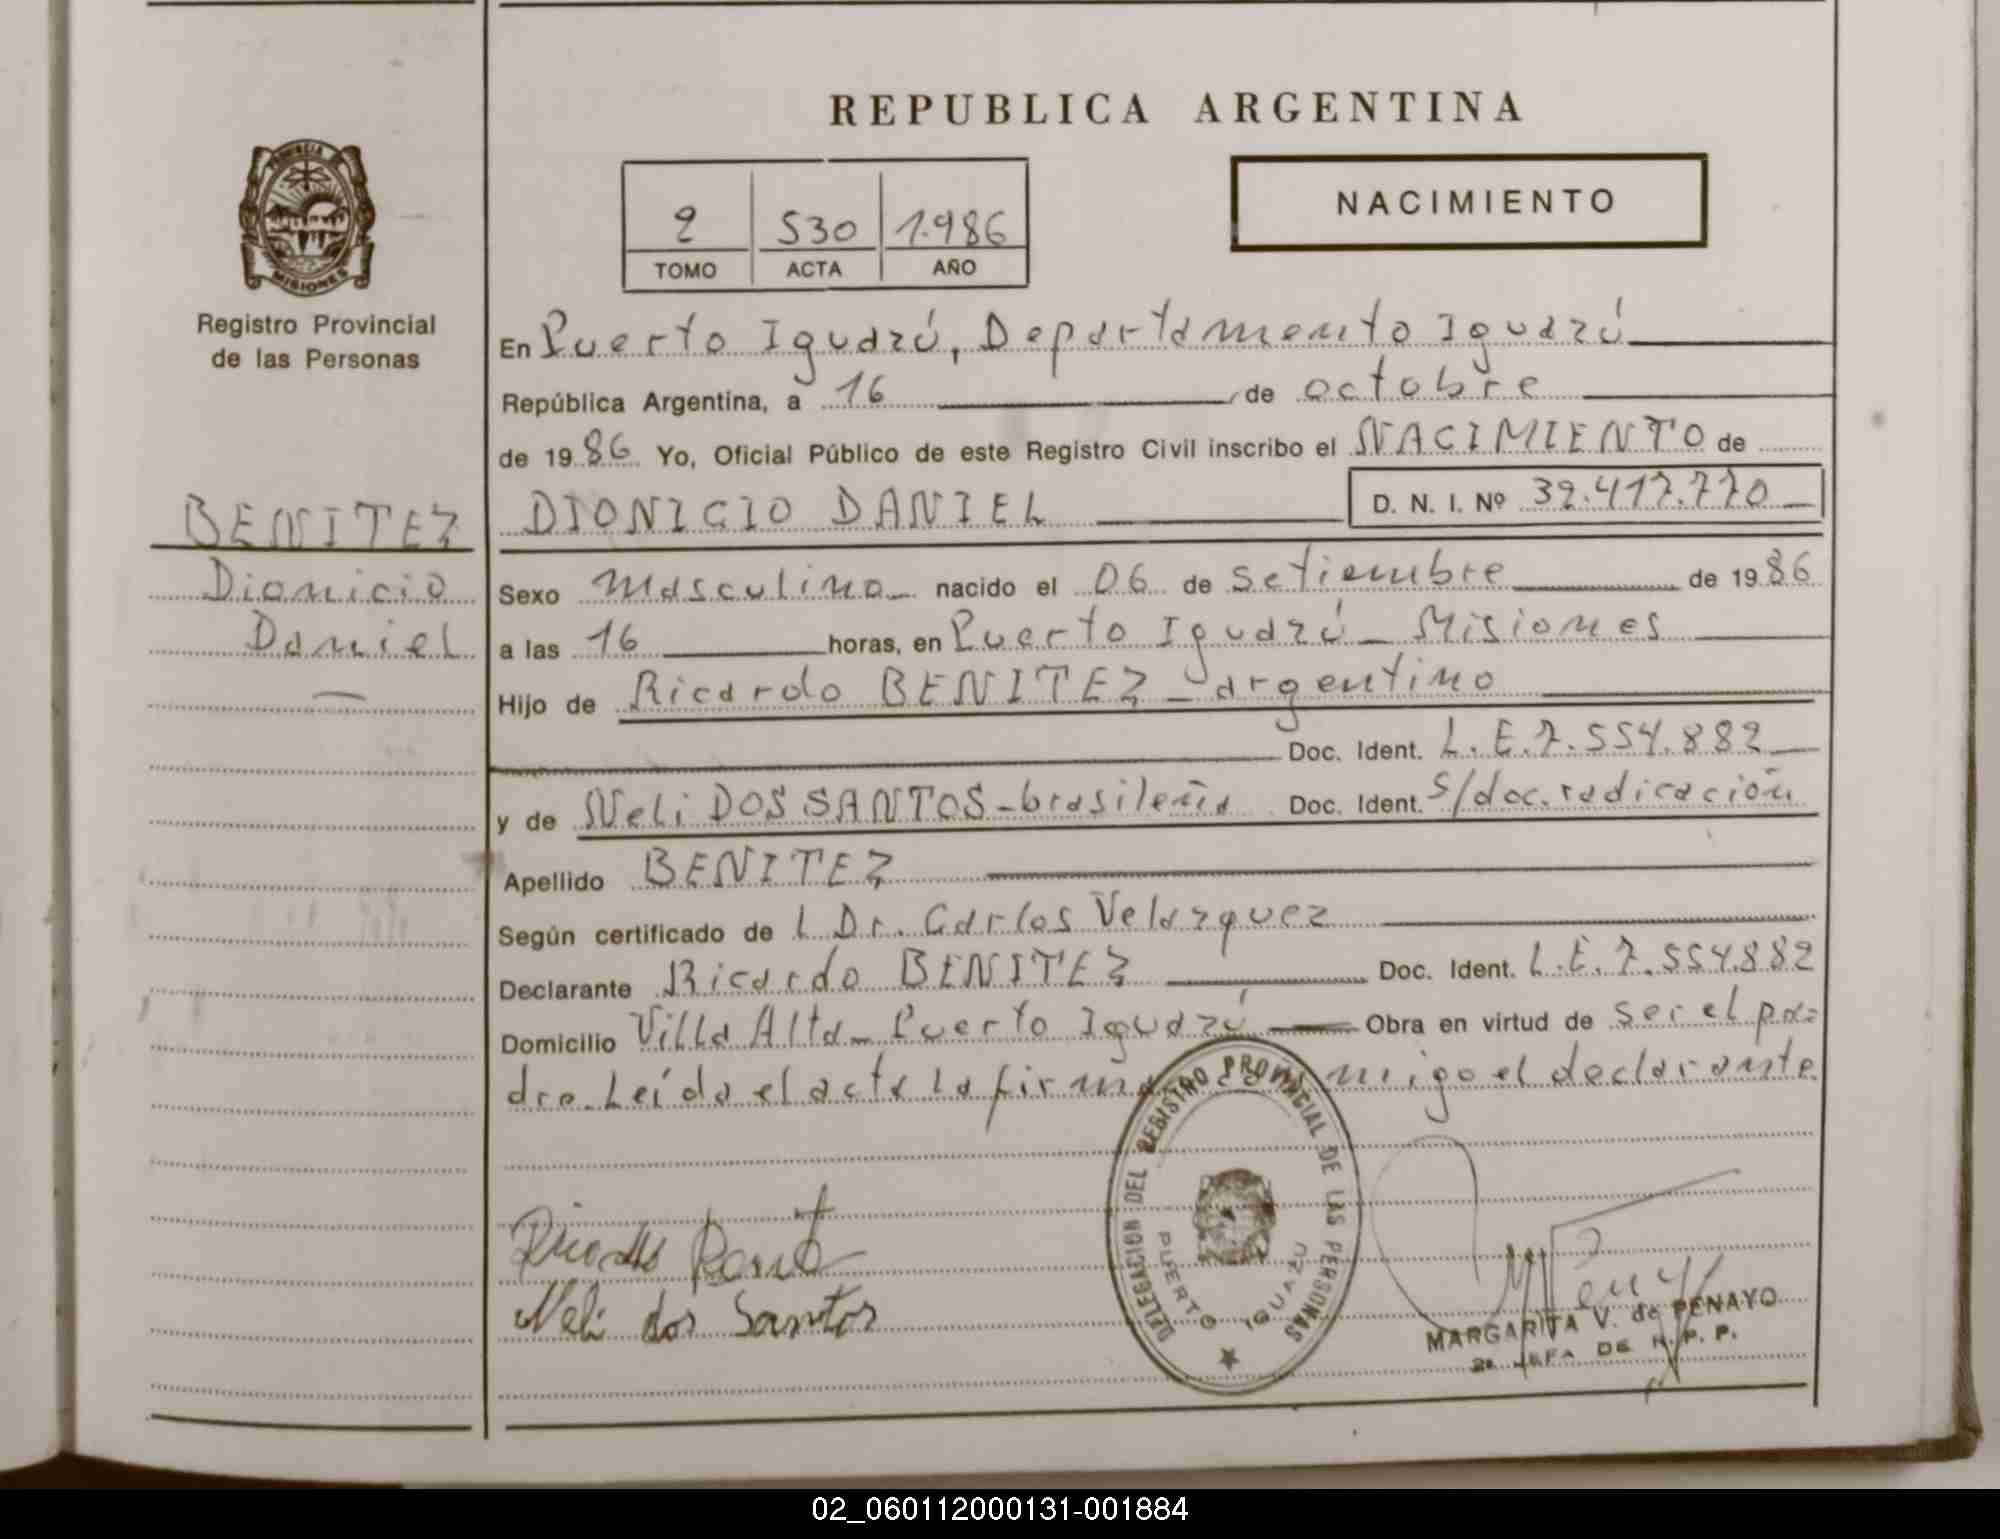 REPUBLICA ARGENTINA
PROVINCIA DE
MISIONES
Registro Provincial
de las Personas
2 530 1.986
TOMO ACTA AÑO
NACIMIENTO
BENITEZ
Dionicio
Daniel
En Puerto Iguazú, Departamento Iguazú
República Argentina, a 16 de octubre
de 1986 Yo, Oficial Público de este Registro Civil inscribo el NACIMIENTO de
DIONICIO DANIEL D. N. I. Nº 32.417.770
Sexo masculino nacido el 06 de setiembre de 1986
a las 16 horas, en Puerto Iguazú - Misiones
Hijo de Ricardo BENITEZ - argentino
Doc. Ident. L.E.7.554.882
y de Neli DOS SANTOS - brasileña Doc. Ident. s/doc. radicación
Apellido BENITEZ
Según certificado de l Dr. Carlos Velazquez
Declarante Ricardo BENITEZ Doc. Ident. L.E.7.554.882
Domicilio Villa Alta - Puerto Iguazú Obra en virtud de ser el pa=
dre. Leída el acta la firma migo el declarante
DELEGACION DEL REGISTRO PROVINCIAL DE LAS PERSONAS
PUERTO IGUAZU
Neli dos Santos
MARGARITA V. de PENAYO
2a JEFA DE R. P. P.
02_060112000131-001884